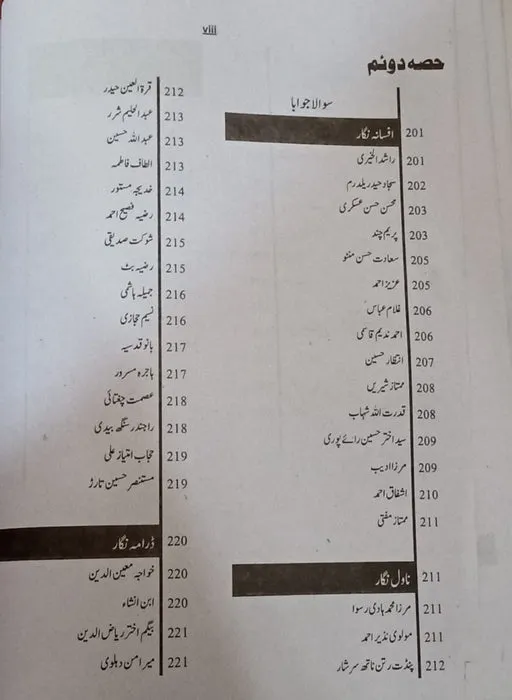 viii
حصہ دوئم
سوالاجوابا
201 افسانہ نگار
201 راشد الخیری
202 سجاد حیدر یلدرم
203 محسن حسن عسکری
203 پریم چند
205 سعادت حسن منٹو
205 عزیز احمد
206 غلام عباس
206 احمد ندیم قاسمی
207 انتظار حسین
208 ممتاز شیریں
208 قدرت اللہ شہاب
209 سید اختر حسین رائے پوری
209 مرزا ادیب
210 اشفاق احمد
211 ممتاز مفتی
211 ناول نگار
211 مرزا محمد ہادی رسوا
211 مولوی نذیر احمد
212 پنڈت رتن ناتھ سرشار
212 قرۃ العین حیدر
213 عبد الحلیم شرر
213 عبد اللہ حسین
213 الطاف فاطمہ
214 خدیجہ مستور
214 رضیہ فصیح احمد
215 شوکت صدیقی
215 رضیہ بٹ
216 جمیلہ ہاشمی
216 نسیم حجازی
217 بانو قدسیہ
217 ہاجرہ مسرور
218 عصمت چغتائی
218 راجندر سنگھ بیدی
219 حجاب امتیاز علی
219 مستنصر حسین تارڑ
220 ڈرامہ نگار
220 خواجہ معین الدین
220 ابن انشاء
221 بیگم اختر ریاض الدین
221 میر امن دہلوی